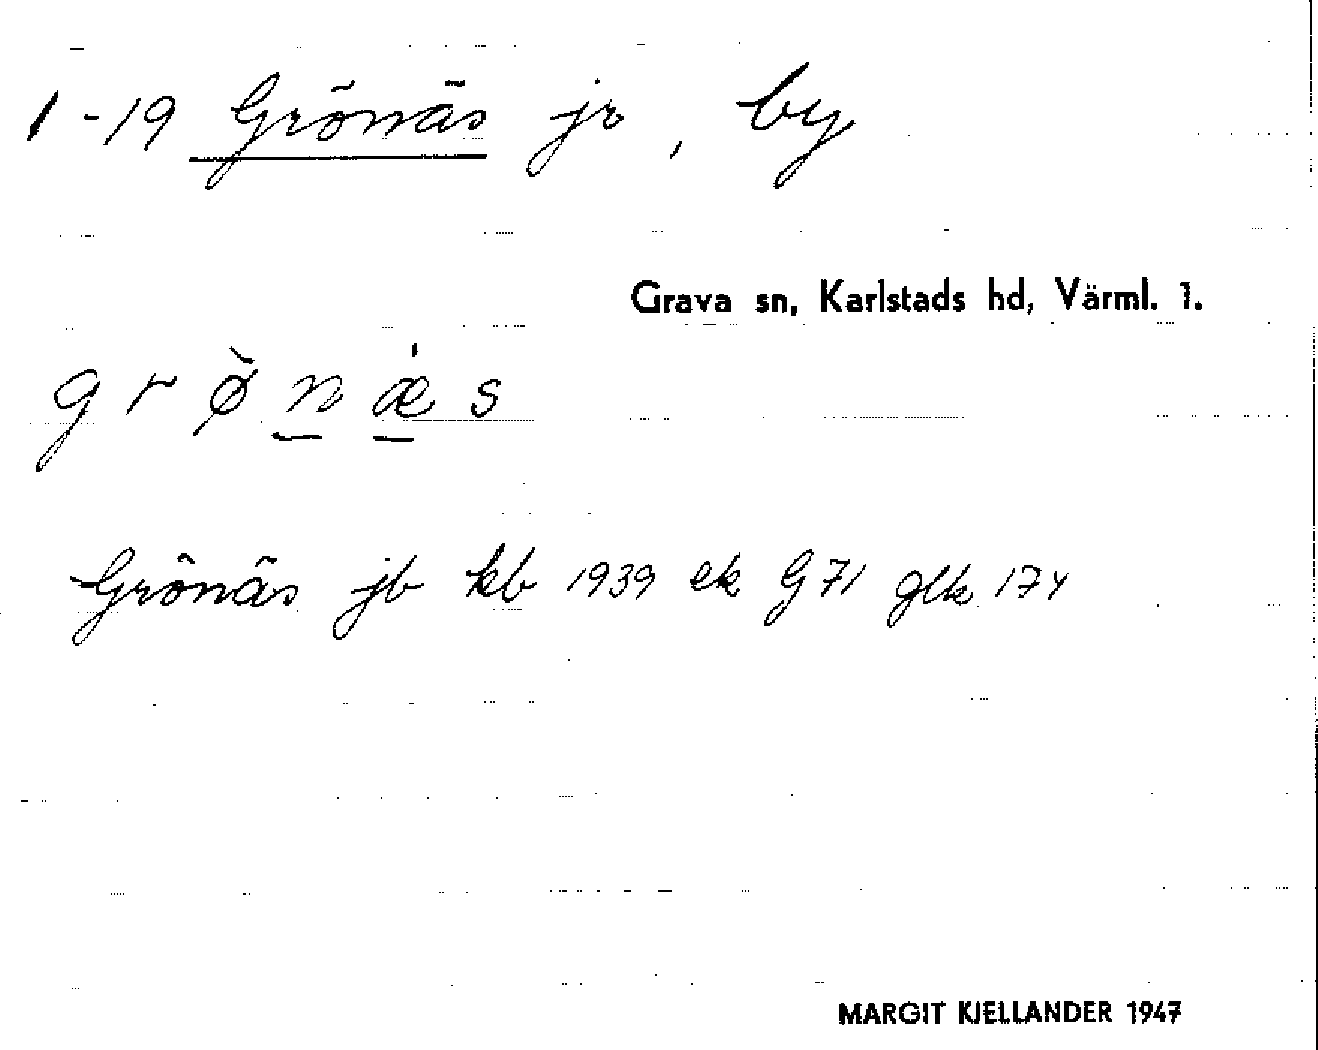 1-19 Grönäs jr, by
Grava sn, Karlstads hd, Värml. 1.
grø̀næ̍s
Grönäs jb kb 1939 ek G71 glk 174
MARGIT KJELLANDER 1947